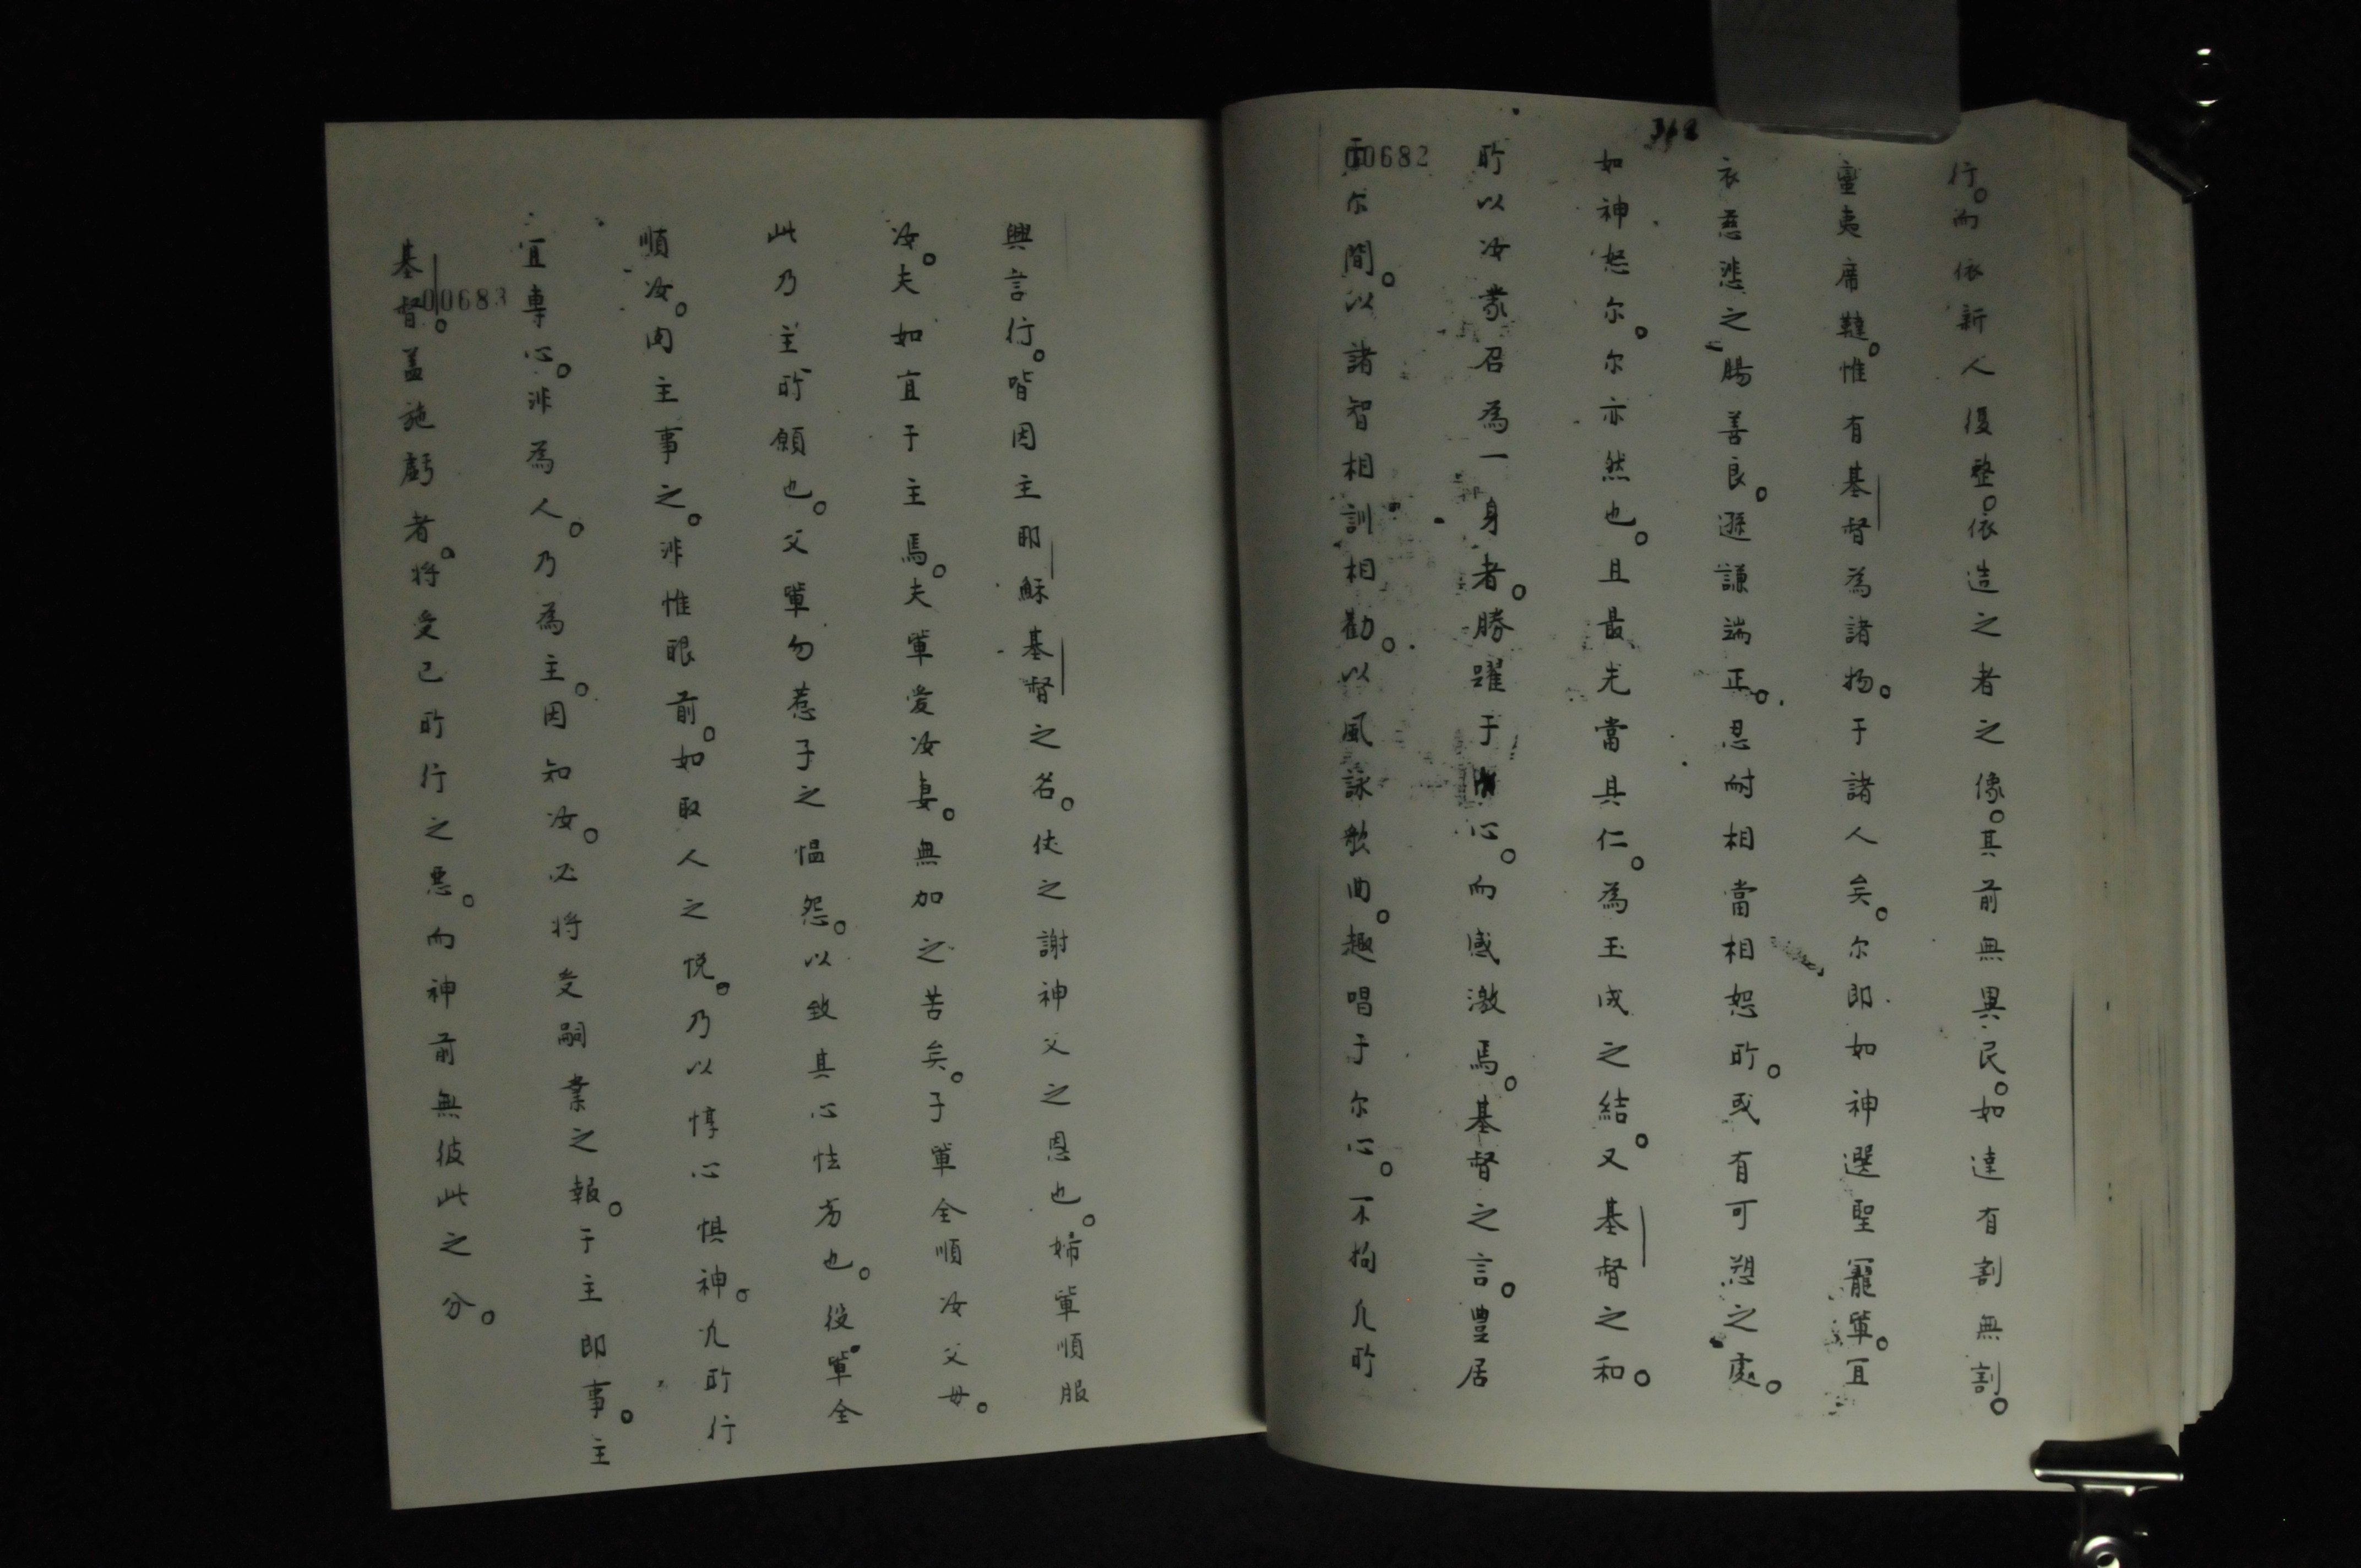 312
行。而依新人復整。依造之者之像。其前無異民。如達有割無割。
蠻夷席韃。惟有基督為諸物。于諸人矣。尔即如神選聖寵軰。宜
衣慈悲之腸善良。遜謙端正。忍耐相當相恕所。或有可愬之處。
如神恕尔。尔亦然也。且最先當具仁。為玉成之結。又基督之和。
所以汝蒙召為一身者。勝躍于心。而感激焉。基督之言。豊居
00682
尔間。以諸智相訓相勸。以風詠歌曲。趣唱于尔心。不拘凢所
興言行。皆因主耶穌基督之名。使之謝神父之恩也。婦軰順服
汝。夫如宜于主焉。夫軰愛汝妻。無加之苦矣。子軰全順汝父母。
此乃主所願也。父軰勿惹子之愠怨。以致其心怯劣也。役軰全
順汝。肉主事之。非惟眼前。如取人之悅。乃以惇心惧神。凢所行
宜專心。非為人。乃為主。因知汝。必將受嗣業之報。于主即事。主
基督。盖施虧者。將受已所行之惡。而神前無彼此之分。
00683